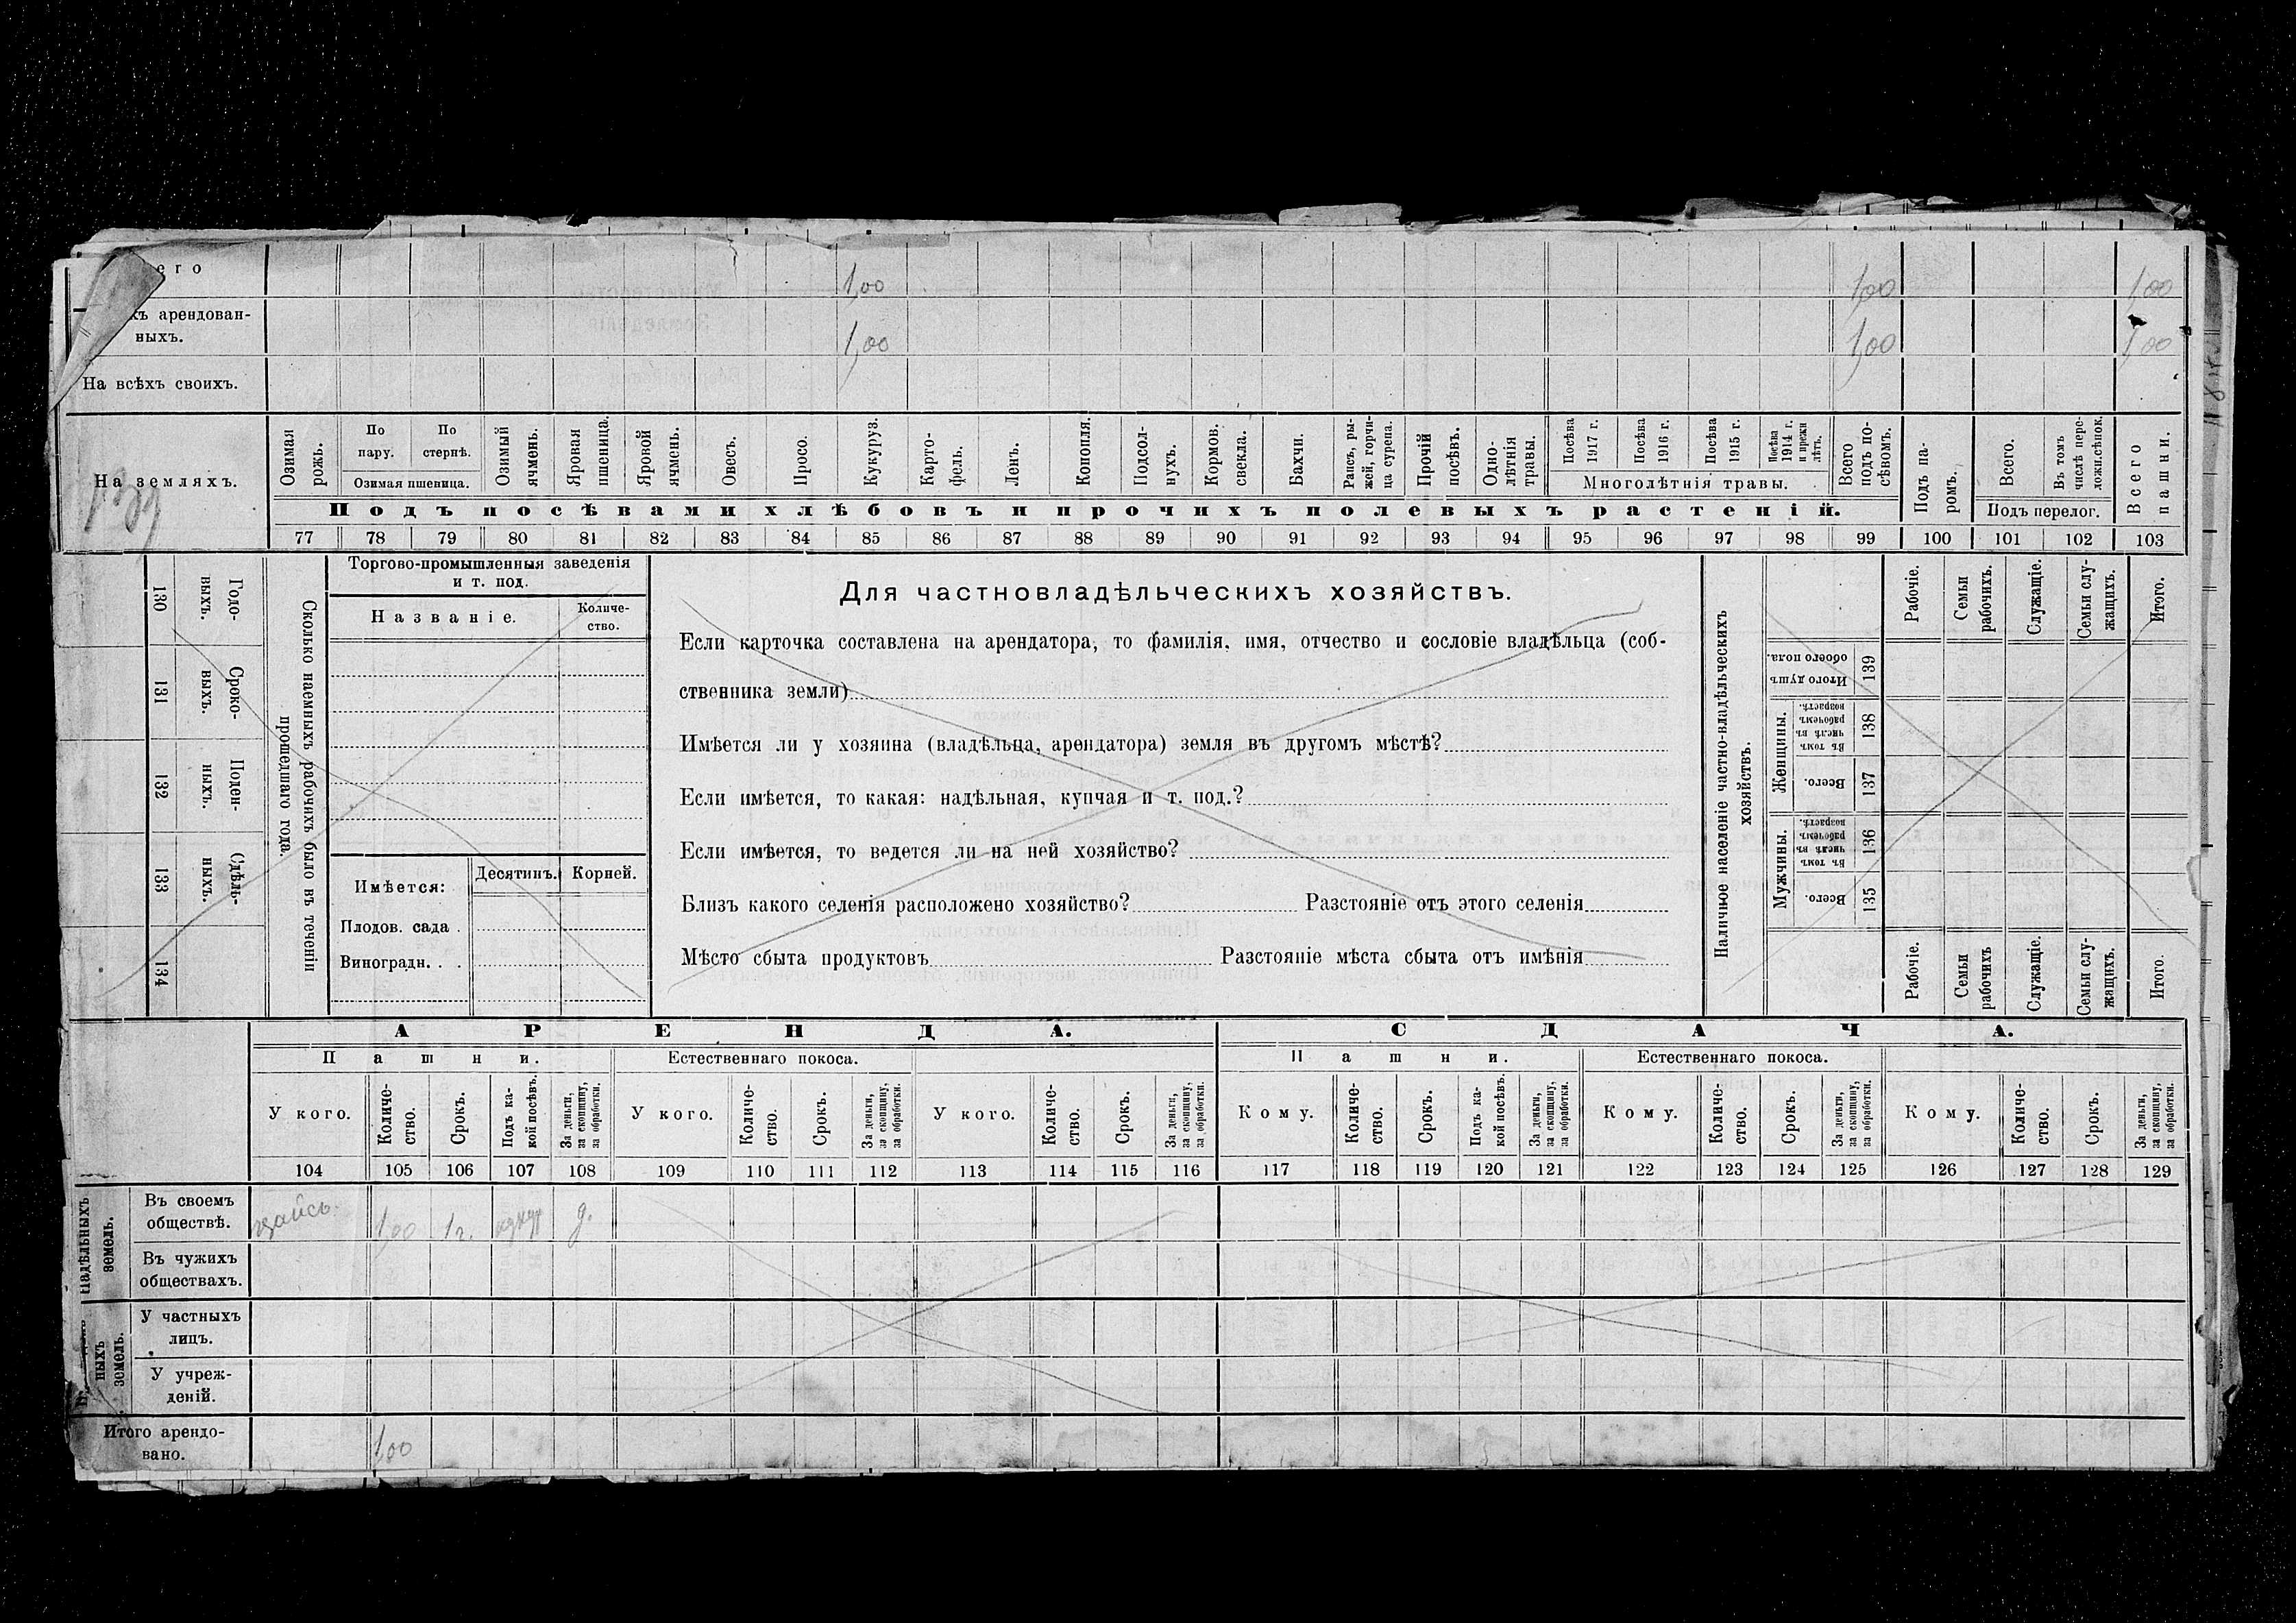 его 1,00 1,00 1,00
хъ арендован-
ныхъ. 1,00 1,00 1,00
На всѣхъ своихъ.
На земляхъ.
Озимая рожь.
По пару.
По стернѣ.
Озимая пшеница.
Озимый ячмень.
Яровая пшеница.
Яровой ячмень.
Овесъ.
Просо.
Кукуруз.
Карто-
фель.
Ленъ.
Конопля.
Подсол-
нухъ.
Кормов. свекла.
Бахчи.
Рапсъ, ры-
жей, горчи-
ца сурепа.
Прочій посѣвъ.
Одно-
лѣтнія травы.
Посѣва 1917 г.
Посѣва 1916 г.
Посѣва 1915 г.
Посѣва 1914 г. и прежн лѣтъ.
Многолѣтнія травы.
Всего подъ по-
сѣвомъ.
Подъ па-
ромъ.
Всего.
Въ томъ числѣ пере-
ложн.сѣнок.
Подъ перелог.
Всего пашни.
Подъ посѣвами хлѣбовъ и прочихъ полевыхъ растеній.
77 78 79 80 81 82 83 84 85 86 87 88 89 90 91 92 93 94 95 96 97 98 99 100 101 102 103
130 Годо-
выхъ.
131 Сроко-
выхъ.
132 Поден-
ныхъ.
133 Сдѣль-
ныхъ.
134
Сколько наемныхъ рабочихъ было въ теченіи
прошедшаго года.
Торгово-промышленныя заведенія
и т. под.
Названіе.
Количе-
ство.
Имѣется:
Десятинъ. Корней.
Плодов. сада .
Виноградн. . .
Для частновладѣльческихъ хозяйствъ.
Если карточка составлена на арендатора, то фамилія, имя, отчество и сословіе владѣльца (соб-
ственника земли)
Имѣется ли у хозяина (владѣльца, арендатора) земля въ другомъ мѣстѣ?
Если имѣется, то какая: надѣльная, купчая и т. под.?
Если имѣется, то ведется ли на ней хозяйство?
Близъ какого селенія расположено хозяйство? Разстояніе отъ этого селенія
Мѣсто сбыта продуктовъ Разстояніе мѣста сбыта отъ имѣнія
Наличное населеніе частно-владѣльческихъ
хозяйствъ.
Рабочіе.
Семьи рабочихъ.
Служащіе.
Семьи слу-
жащихъ.
Итого.
Итого душъ обоего пола. 139
Женщины.
Въ томъ числѣ въ рабочемъ возрастѣ. 138
Всего. 137
Мужчины.
Въ томъ числѣ въ рабочемъ возрастѣ. 136
Всего. 135
Рабочіе.
Семьи рабочихъ
Служащіе.
Семьи слу-
жащихъ.
Итого.
АРЕНДА. СДАЧА.
Пашни. Естественнаго покоса. Пашни. Естественнаго покоса.
У кого.
Количе-
ство.
Срокъ.
Подъ ка-
кой посѣвъ.
За деньги, за скопщину, за обработки.
У кого.
Количе-
ство.
Срокъ.
За деньги, за скопщину, за обработки.
У кого.
Количе-
ство.
Срокъ.
За деньги, за скопщину, за обработки.
Кому.
Количе-
ство.
Срокъ.
Подъ ка-
кой посѣвъ.
За деньги, за скопщину, за обработки.
Кому.
Количе-
ство.
Срокъ.
За деньги, за скопщину, за обработки.
Кому.
Количе-
ство.
Срокъ.
За деньги, за скопщину, за обработки.
104 105 106 107 108 109 110 111 112 113 114 115 116 117 118 119 120 121 122 123 124 125 126 127 128 129
Надѣльныхъ земель.
Въ своемъ
обществѣ. 1,00 1 г. кукур д.
Въ чужихъ
обществахъ.
ныхъ земель.
У частныхъ
лицъ.
У учреж-
деній.
Итого арендо-
вано. 1,00